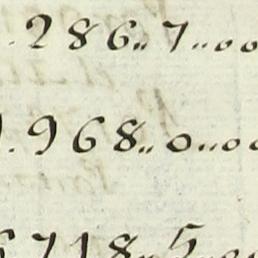 .286..7..00
.968..0..00
718..5..00